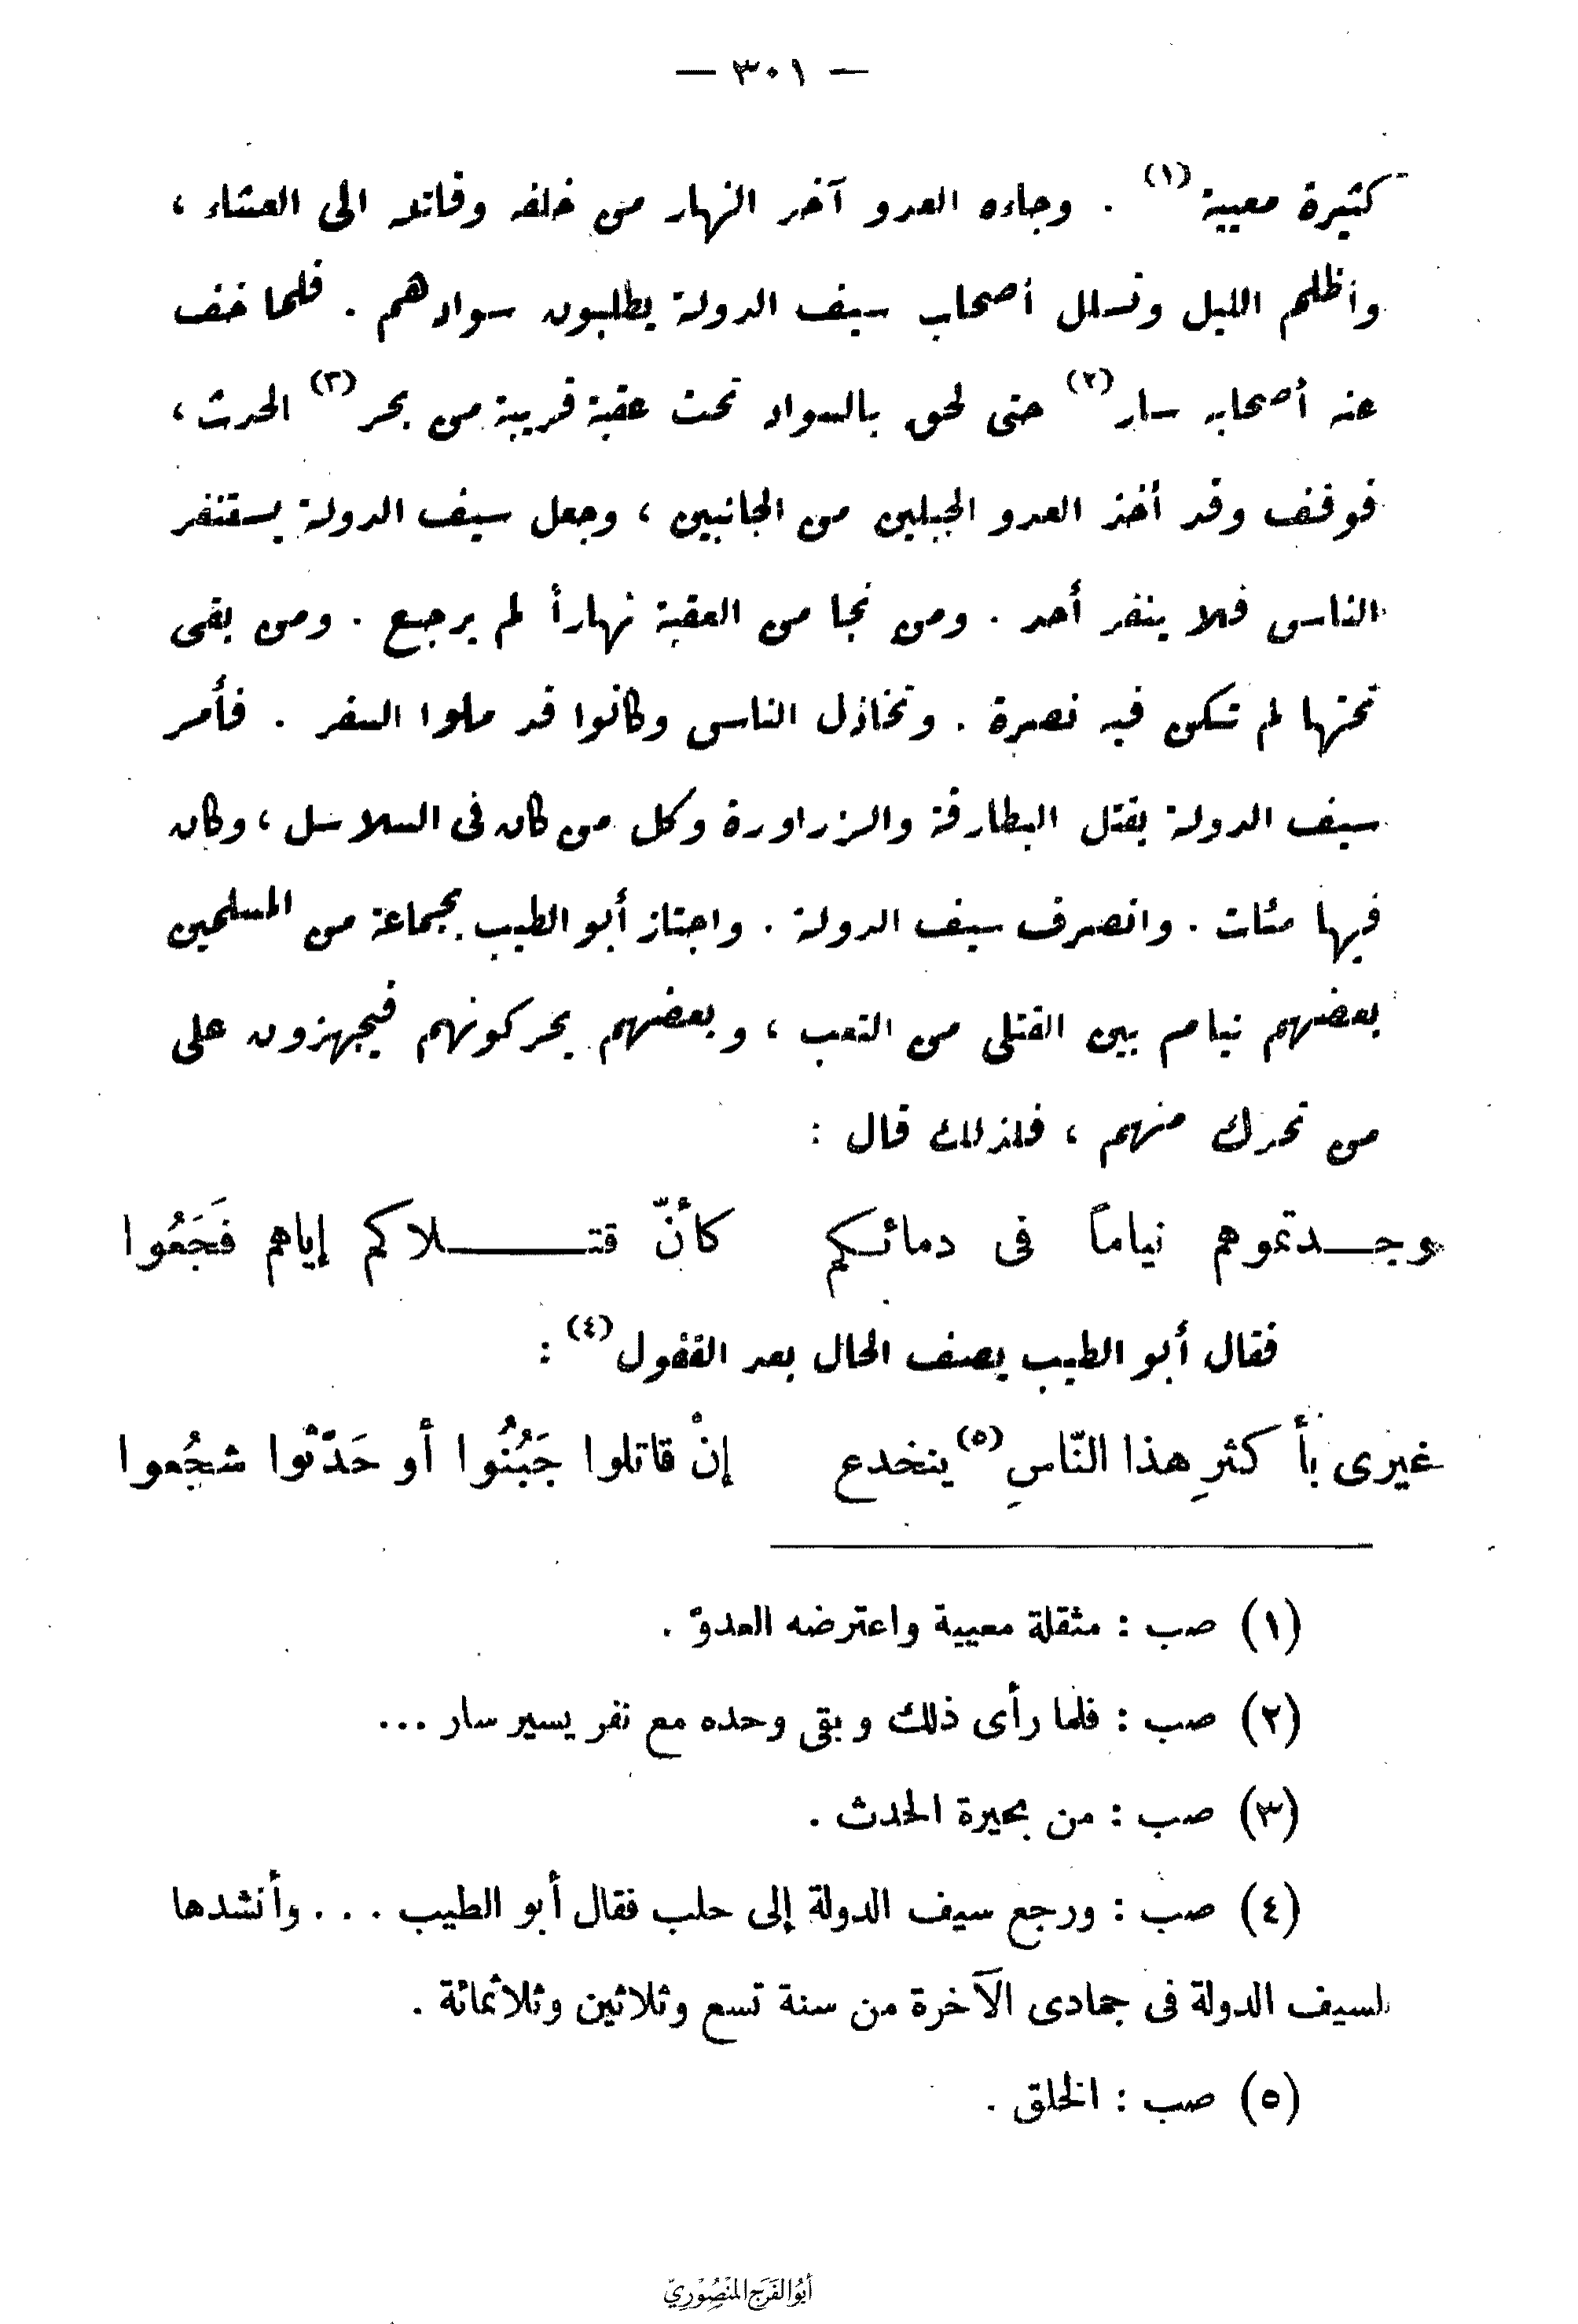 — ٣٠١ —
كثيرة معيية (١) . وجاءه العدو آخر النهار من خلفه وقاتله الى العشاء ،
وأظلم الليل وتسلل أصحاب سيف الدولة يطلبون سوادهم . فلما خف
عنه أصحابه سار (٢) حتى لحق بالسواد تحت عقبة قريبة من بحر (٣) الحدث ،
فوقف وقد أخذ العدو الجبلين من الجانبين ، وجعل سيف الدولة يستنفر
الناس فلا ينفر أحد . ومن نجا من العقبة نهاراً لم يرجع . ومن بقى
تحتها لم تكن فيه نصرة . وتخاذل الناس وكانوا قد ملوا السفر . فأمر
سيف الدولة بقتل البطارقة والزراورة وكل من كان فى السلاسل ، وكان
فيها مئات . وانصرف سيف الدولة . واجتاز أبو الطيب بجماعة من المسلمين
بعضهم نيام بين القتلى من التعب ، وبعضهم يحركونهم فيجهزون على
من تحرك منهم ، فلذلك قال :
وجـدتموهم نياماً فى دمائـكم كأنّ قتـلاكم إياهم فَجَعُوا
فقال أبو الطيب يصف الحال بعد القفول (٤) :
غيرى بأكثرِ هذا النّاسِ (٥) ينخدع إنْ قاتلوا جَبُنُوا أو حَدّثوا شجُعوا
(١) صب : مثقلة معيية واعترضه العدوّ .
(٢) صب : فلما رأى ذلك وبقى وحده مع نفر يسير سار ...
(٣) صب : من بحيرة الحدث .
(٤) صب : ورجع سيف الدولة إلى حلب فقال أبو الطيب ... وأنشدها
لسيف الدولة فى جمادى الآخرة من سنة تسع وثلاثين وثلاثمائة .
(٥) صب : الخلق .
أبُو الفَرَج المَنْصُوْرِيّ